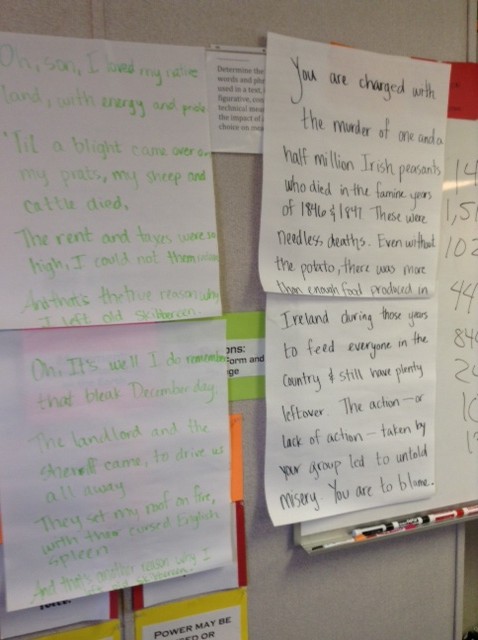 Oh, son, I loved my native
land, with energy and pride
'Til a blight came over
my prats, my sheep and
cattle died,
The rent and taxes were so
high, I could not them
And that's the true reason why
I left old skibbereen.
Oh, It's well I do remember
that bleak December day.
The landlord and the
sheriff came, to drive us
all away
They set my roof on fire,
with their cursed English
spleen
And that's another reason why I
old skibbereen.
Determine the
words and
used in a text,
figurative,
technical
the impact of
choice on
You are charged with
the murder of one and a
half million Irish peasants
who died in the famine years
of 1846 & 1847. These were
needless deaths. Even without
the potato, there was more
than enough food produced in
Ireland during those years
to feed everyone in the
country & still have plenty
leftover. The action — or
lack of action — taken by
your group led to untold
misery. You are to blame.
ons:
Form and
ge
14
1,51
102
44
84
POWER MAY BE
USED OR